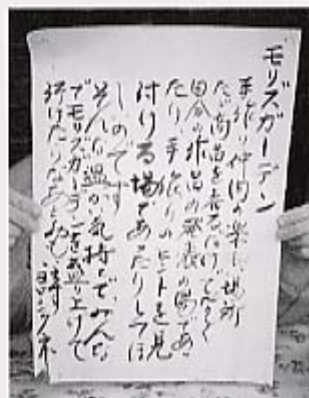 モリズガーデン
手作り仲間の楽しい場所
ただ商品を売るだけでなく
自分の作品の発表の場であっ
たり、手作りのヒントを見
付ける場であったりしてほ
しいのです
そんな温かい気持で、みんな
でモリズガーデンを盛り上げて
行けたらなあと思います